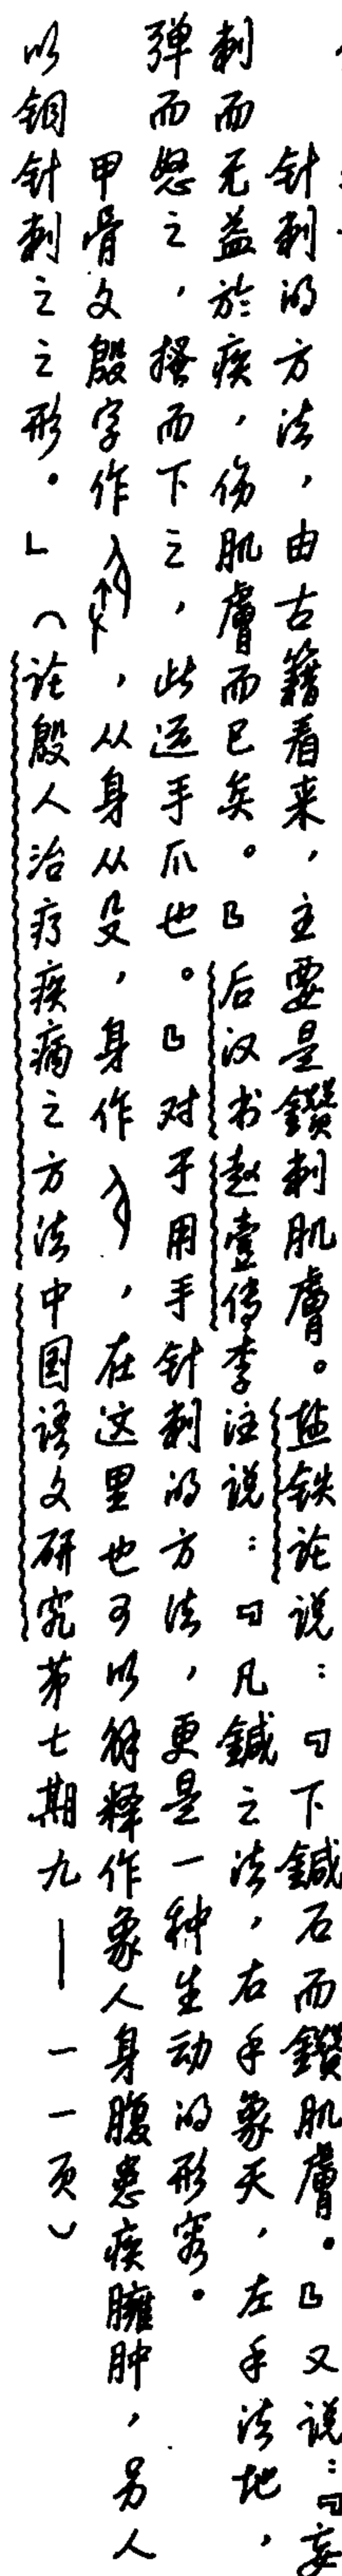 针刺的方法，由古籍看来，主要是鑽刺肌膚。盐铁论说：『下鍼石而鑽肌膚。』又说：『妄
刺而无益於疾，伤肌膚而已矣。』后汉书赵壹傳李注说：『凡鍼之法，右手象天，左手法地，
弹而怒之，搔而下之，此运手爪也。』对于用手针刺的方法，更是一种生动的形容。
甲骨文殷字作，从身从殳，身作，在这里也可以解释作象人身腹患疾臃肿，另人
以铜针刺之之形。」（论殷人治疗疾病之方法中国语文研究第七期九—一一页）